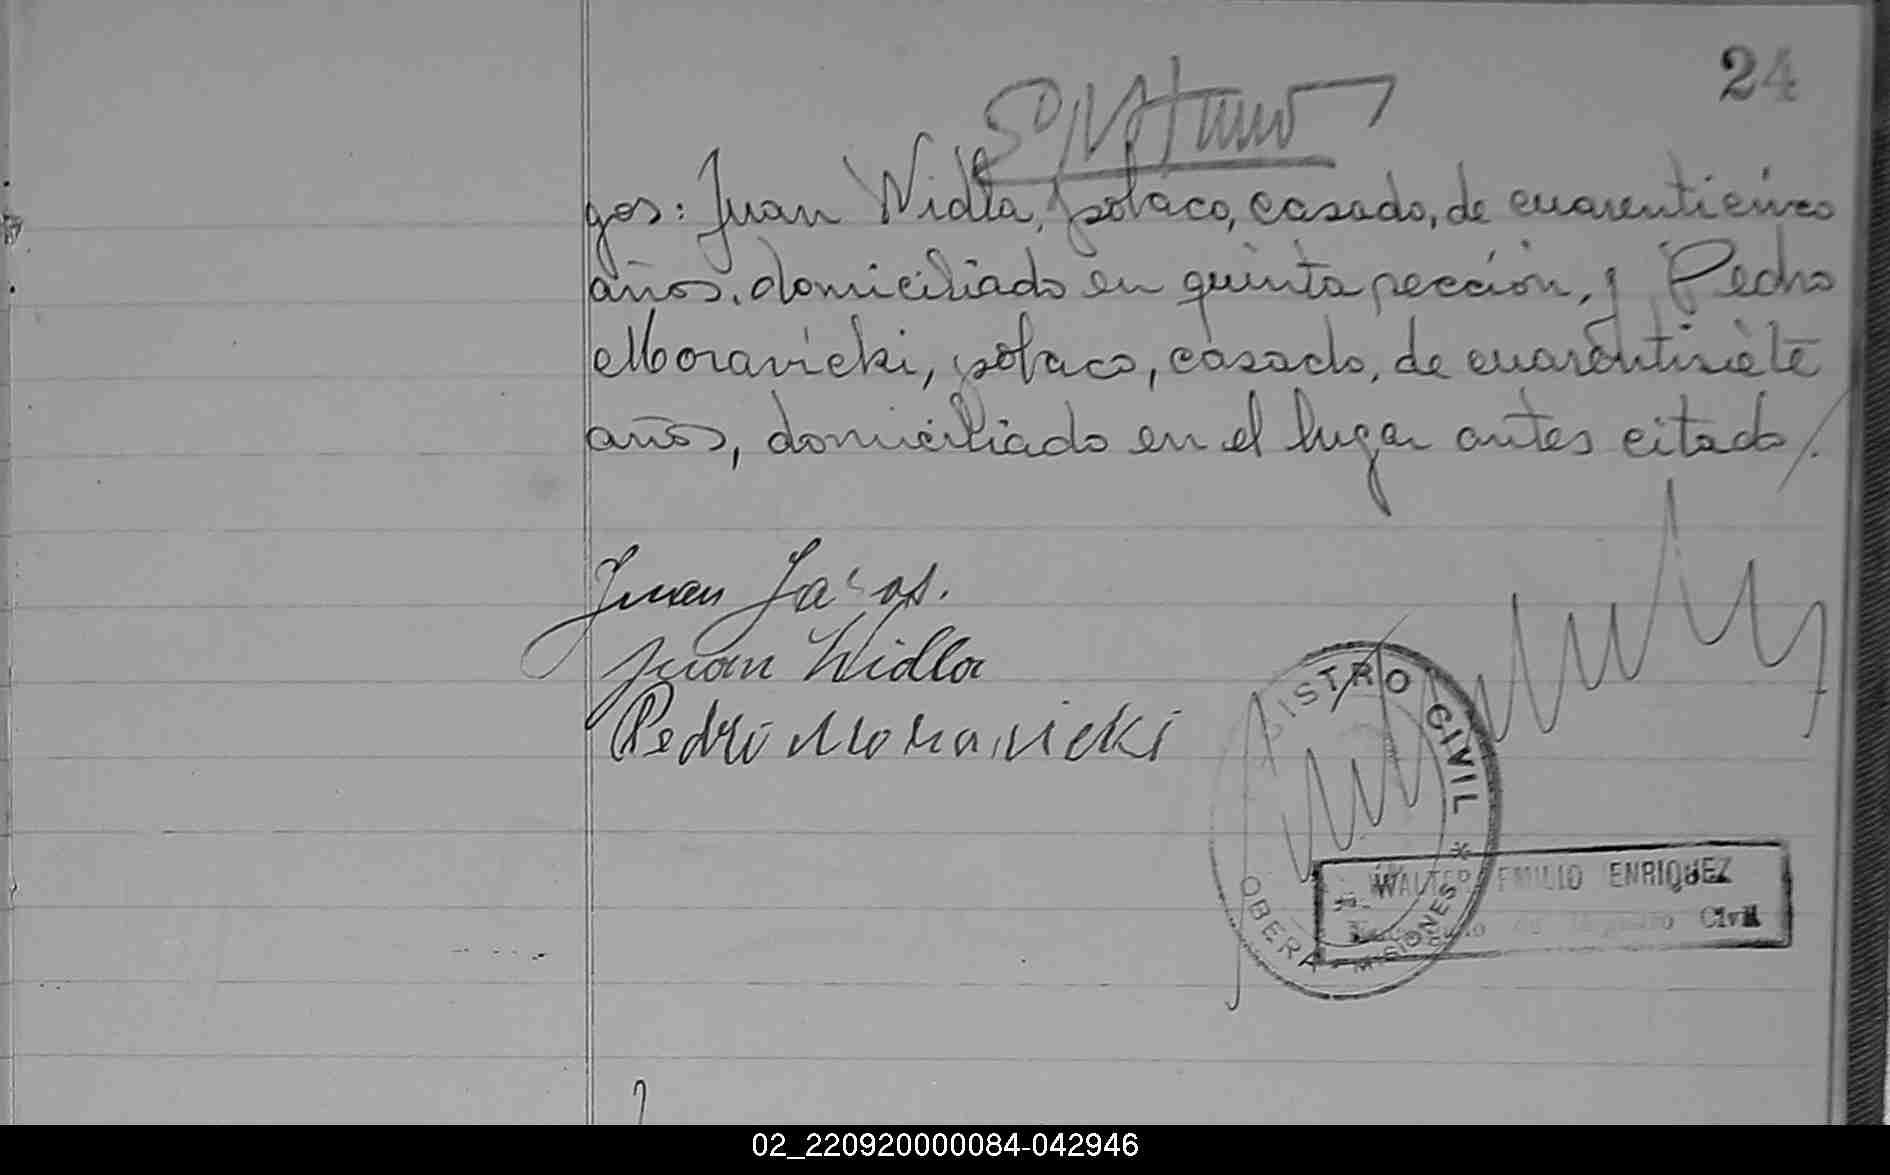 24
gos: Juan Widla, polaco, casado, de cuarenticinco
años, domiciliado en quinta sección, y Pedro
Moravicki, polaco, casado, de cuarentisiete
años, domiciliado en el lugar antes citado/.
Juan
Juan Widla
Pedro Moravicki
REGISTRO CIVIL * OBERA - MISIONES *
WALTER EMILIO ENRIQUEZ
Civil
02_220920000084-042946